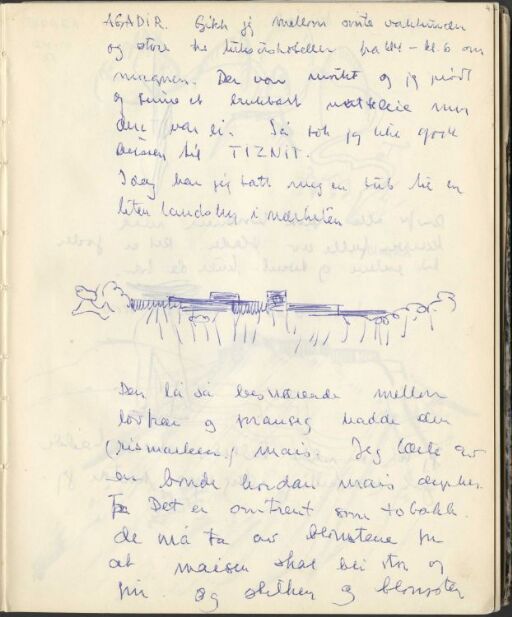 AGADIR. Gikk jeg mellom
og store luksushoteller fra kl 4 - kl. 6 om
morgnen. Der var mørkt og jeg prøvde
å finne et brukbart men
det var ei. Så tok jeg like godt
bussen til TIZNIT.
I dag har jeg tatt meg en tur til en
liten landsby i nærheten
Den lå så besnærende mellom
løvtrær og hadde den
mais. Jeg lærte av
en bonde hvordan mais dyrkes.
Det er omtrent som tobakk.
de må ta av blomstene for
at maisen skal bli stor og
fin. og og blomster